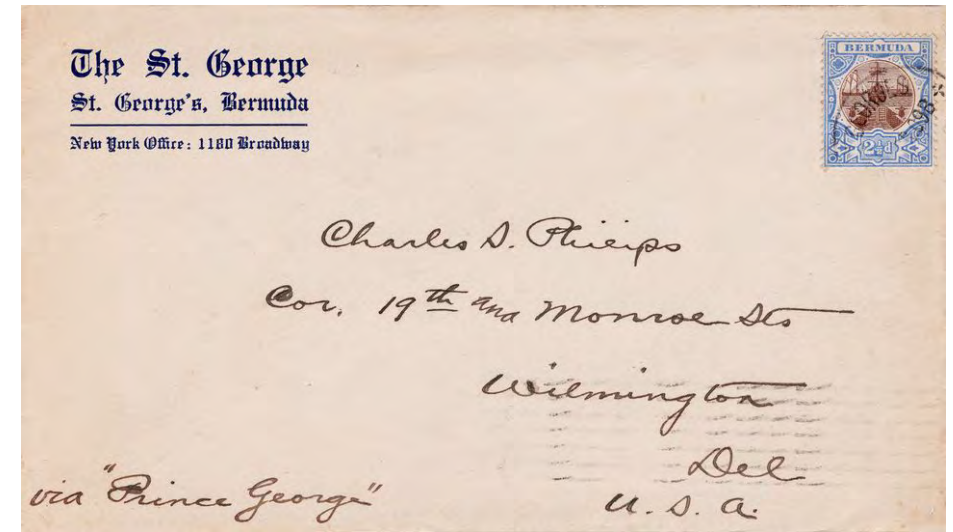 The St. George
St. George's, Bermuda
New York Office: 1180 Broadway
BERMUDA
2½d
Charles S. Phillips
Cor. 19th and Monroe Sts
Wilmington
Del
U. S. A.
via "Prince George"